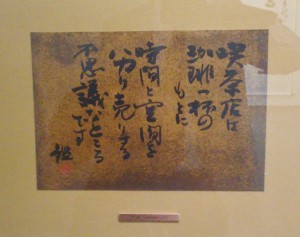 喫茶店は
珈琲一杯の
もとに
時間と空間を
切り売りする
不思議なところ
です